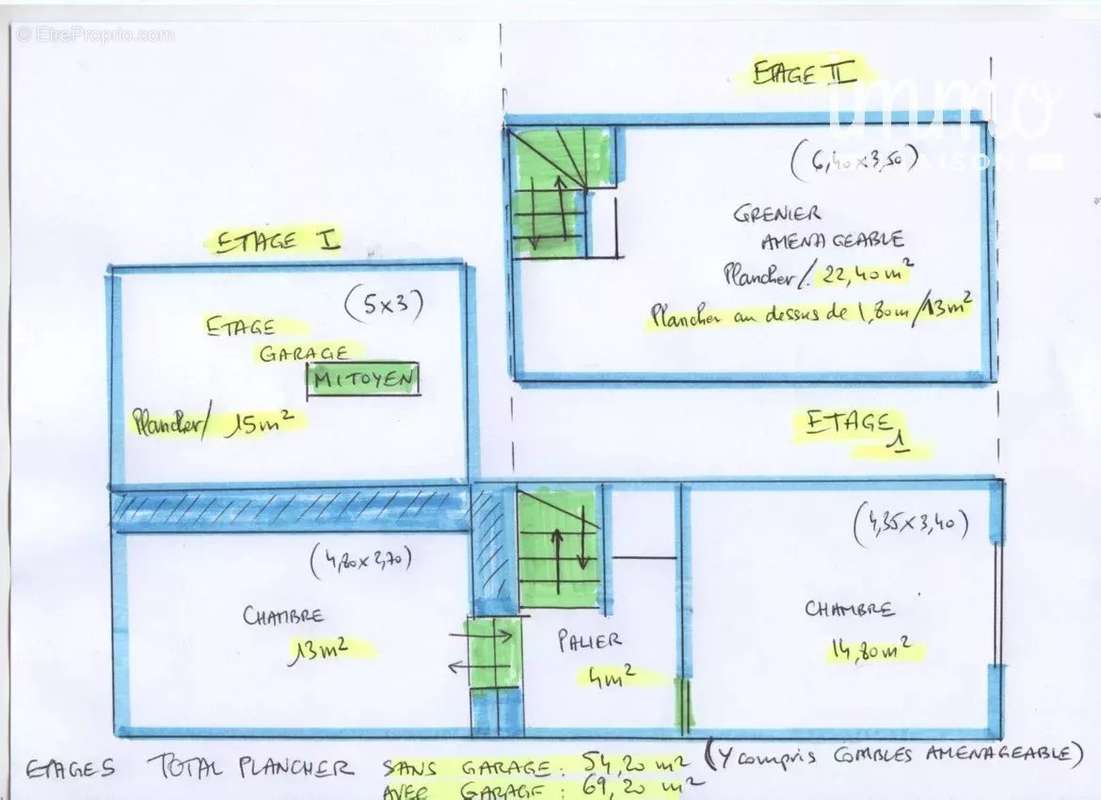 © EtreProprio.com
ETAGE II
immo
(6,40 x 3,50)
GRENIER
AMENAGEABLE
Plancher/. 22,40 m²
Plancher au dessus de 1,80m/13m²
ETAGE I
(5 x 3)
ETAGE
GARAGE
MITOYEN
Plancher/ 15 m²
ETAGE
1
(4,80 x 2,70)
CHAMBRE
13 m²
PALIER
4 m²
(4,35 x 3,40)
CHAMBRE
14,80 m²
ETAGES TOTAL PLANCHER SANS GARAGE : 54,20 m² (Y compris COMBLES AMENAGEABLE)
AVEC GARAGE : 69,20 m²